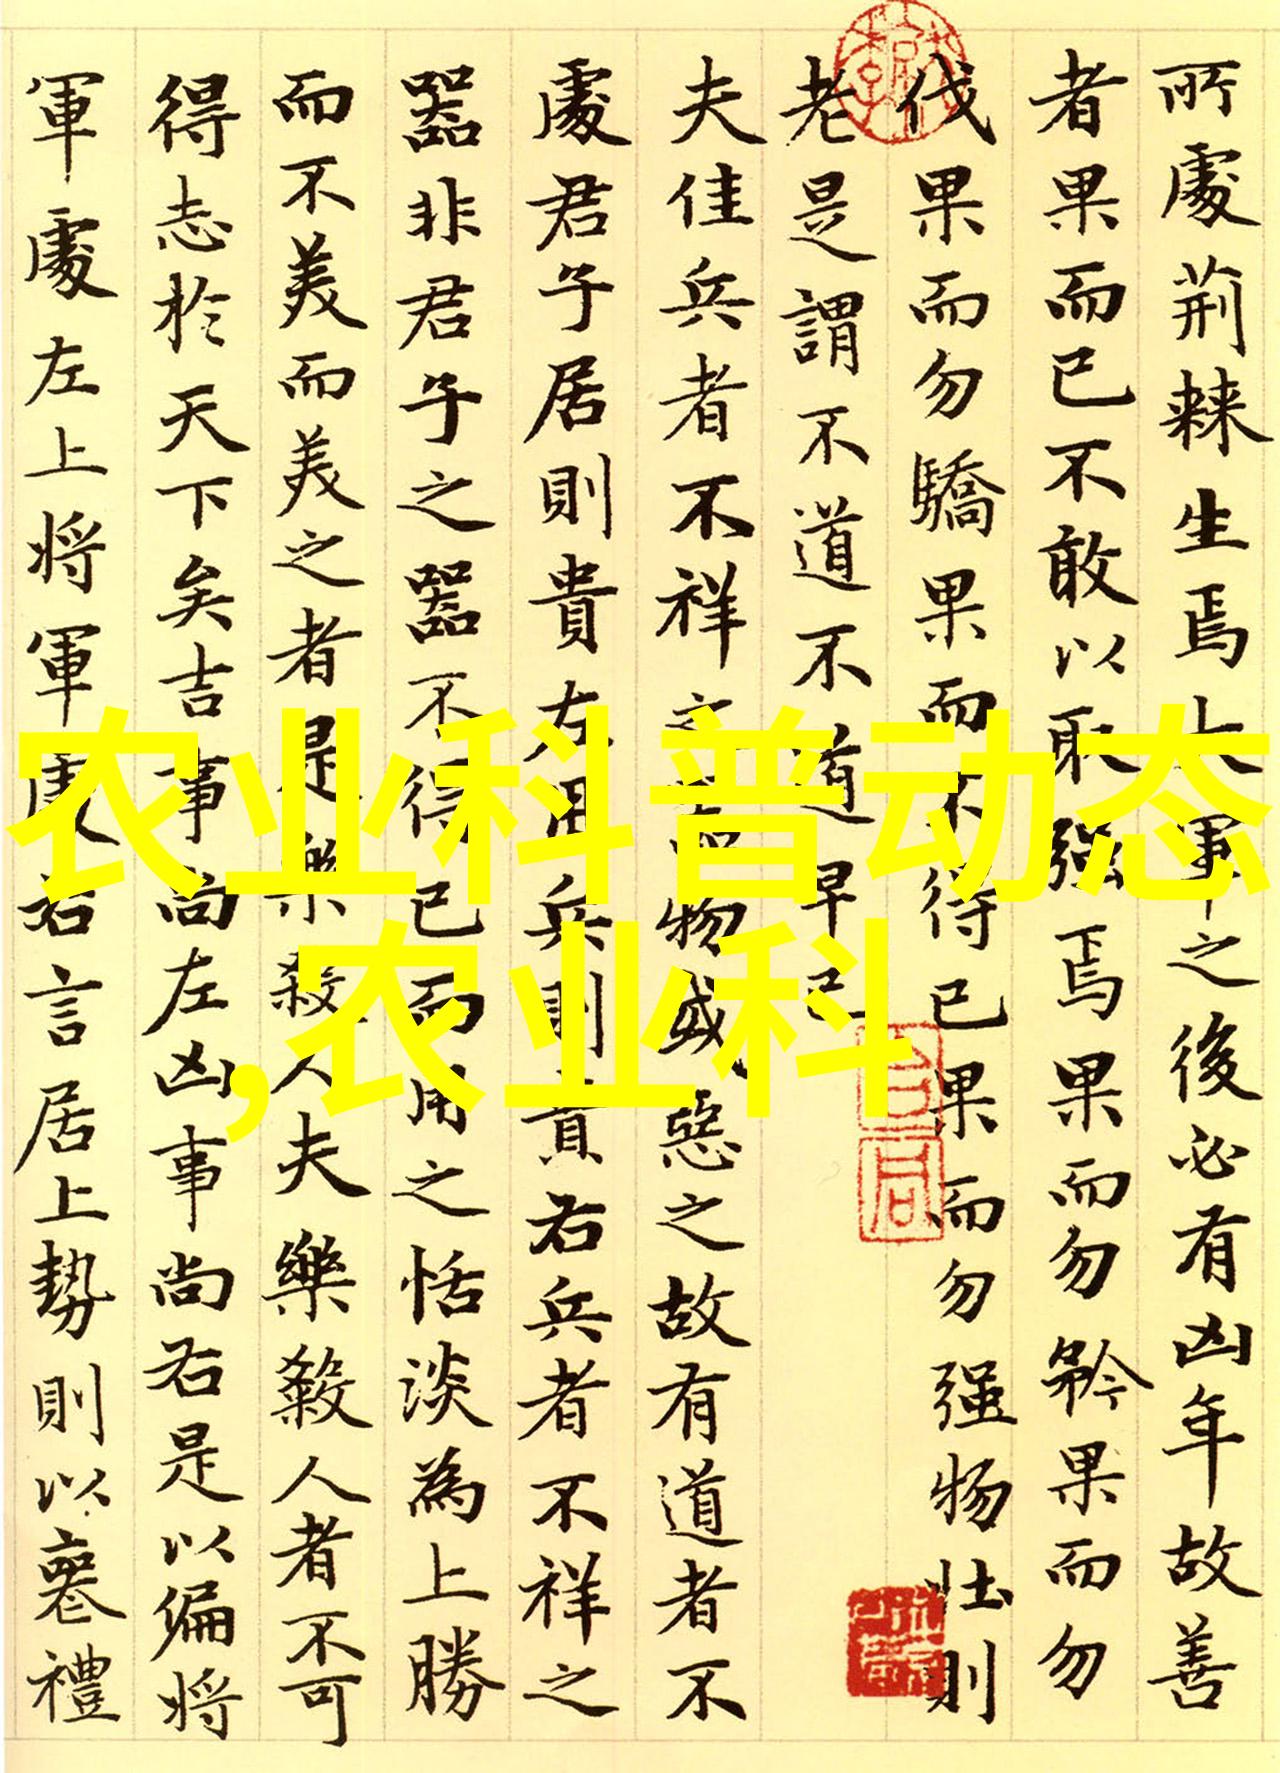 所處荆棘生焉大軍之後必有凶年故善
者果而已不敢以取强焉果而勿矜果而勿
伐果而勿驕果而不得已果而勿强物壯則
老是謂不道不道早已
夫佳兵者不祥之器物或惡之故有道者不
處君子居則貴左用兵則貴右兵者不祥之
器非君子之器不得已而用之恬淡為上勝
而不美而美之者是樂殺人夫樂殺人者不可
得志於天下矣吉事尚左凶事尚右是以偏將
軍處左上將軍處右言居上勢則以喪禮
农业科普动态
,农业科